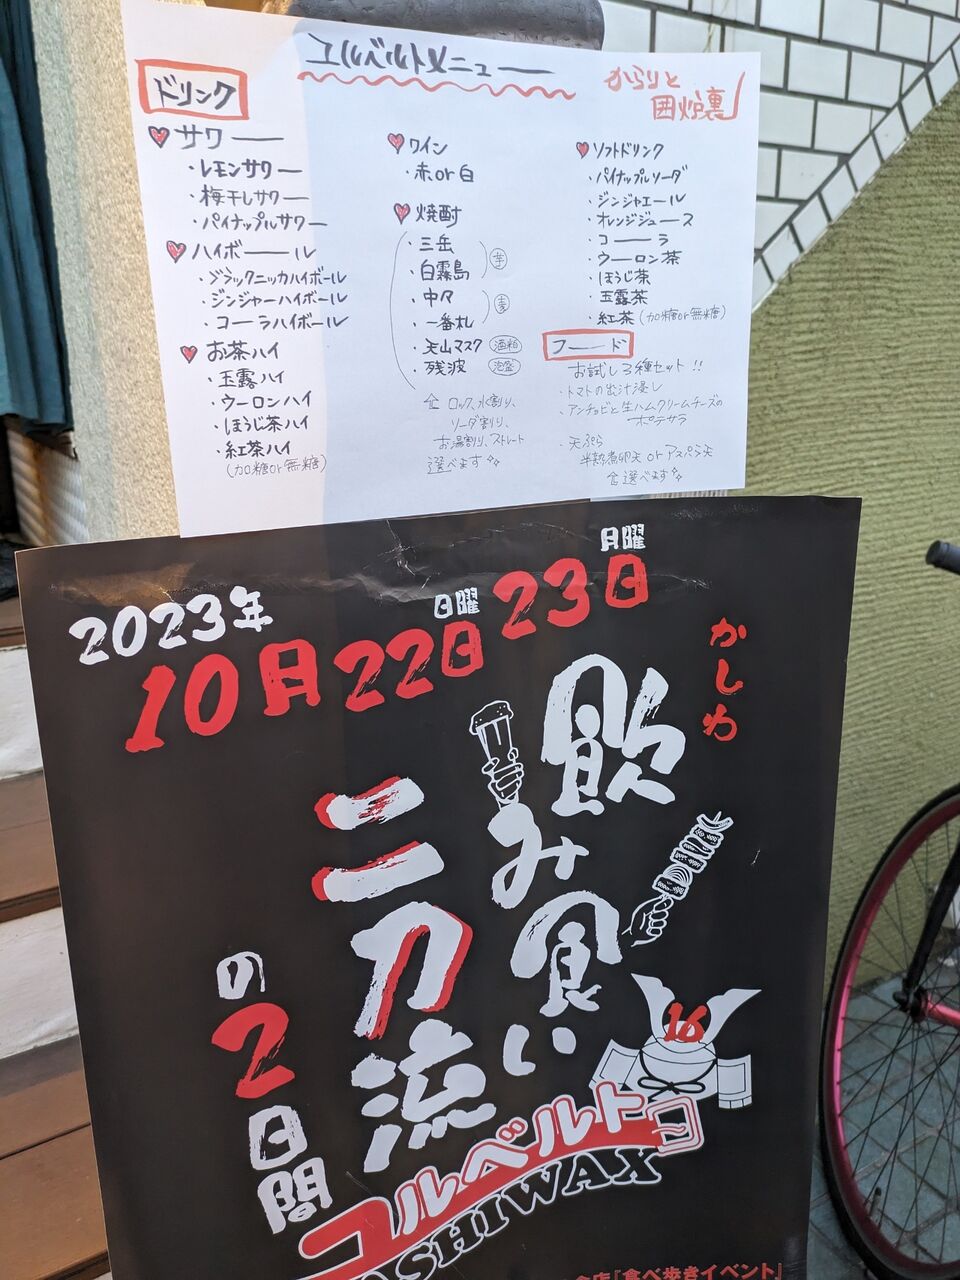 ユルベルトメニュー
からりと
囲炉裏
ドリンク
サワー
・レモンサワー
・梅干しサワー
・パイナップルサワー
ハイボール
・ブラックニッカハイボール
・ジンジャーハイボール
・コーラハイボール
お茶ハイ
・玉露ハイ
・ウーロンハイ
・ほうじ茶ハイ
・紅茶ハイ
(加糖or無糖)
ワイン
・赤or白
焼酎
・三岳
・白霧島
芋
・中々
・一番札
麦
・天山マスク 酒粕
・残波 泡盛
全 ロック、水割り、
ソーダ割り、
お湯割り、ストレート
選べます
ソフトドリンク
・パイナップルソーダ
・ジンジャエール
・オレンジジュース
・コーラ
・ウーロン茶
・ほうじ茶
・玉露茶
・紅茶(加糖or無糖)
フード
お試し3種セット!!
・トマトの出汁浸し
・アンチョビと生ハムクリームチーズの
ポテサラ
・天ぷら
半熟煮卵天 or アスパラ天
選べます
2023年
10月22日日曜23日月曜
かしわ
飲み食い
二刀流
の2日間
16
ユルベルトコ
ASHIWAX
『食べ歩きイベント』